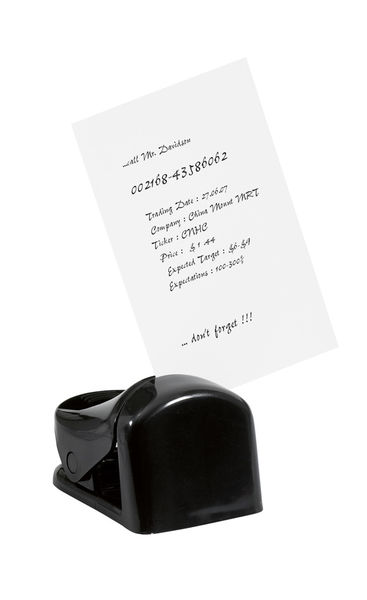 ...call Mr. Davidson
002168-43586062
Trading Date : 27.06.07
Company : China Mount MRT.
Ticker : CNHC
Price : $ 1.44
Expected Target : $6-$9
Expectations : 100-300%
... don't forget !!!